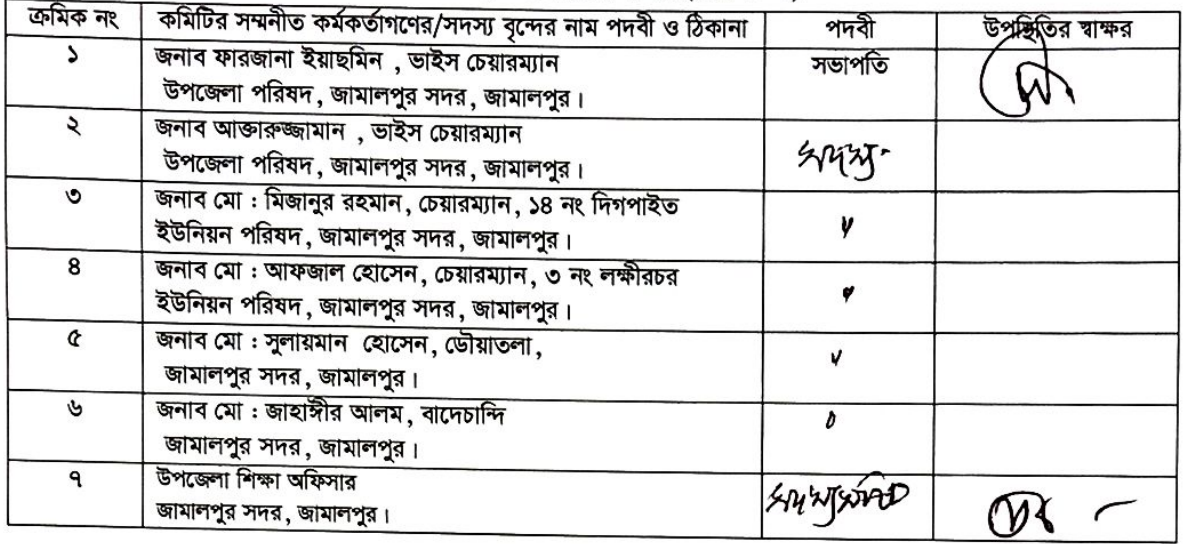 ক্রমিক নং কমিটির সম্মনীত কর্মকর্তাগণের/সদস্য বৃন্দের নাম পদবী ও ঠিকানা পদবী উপস্থিতির স্বাক্ষর
১ জনাব ফারজানা ইয়াছমিন , ভাইস চেয়ারম্যান সভাপতি
উপজেলা পরিষদ, জামালপুর সদর, জামালপুর।
২ জনাব আক্তারুজ্জামান , ভাইস চেয়ারম্যান সদস্য
উপজেলা পরিষদ, জামালপুর সদর, জামালপুর।
৩ জনাব মো : মিজানুর রহমান, চেয়ারম্যান, ১৪ নং দিগপাইত
ইউনিয়ন পরিষদ, জামালপুর সদর, জামালপুর। "
৪ জনাব মো : আফজাল হোসেন, চেয়ারম্যান, ৩ নং লক্ষীরচর
ইউনিয়ন পরিষদ, জামালপুর সদর, জামালপুর। "
৫ জনাব মো : সুলায়মান হোসেন, ডৌয়াতলা, "
জামালপুর সদর, জামালপুর।
৬ জনাব মো : জাহাঙ্গীর আলম, বাদেচান্দি "
জামালপুর সদর, জামালপুর।
৭ উপজেলা শিক্ষা অফিসার সদস্য সচিব
জামালপুর সদর, জামালপুর।